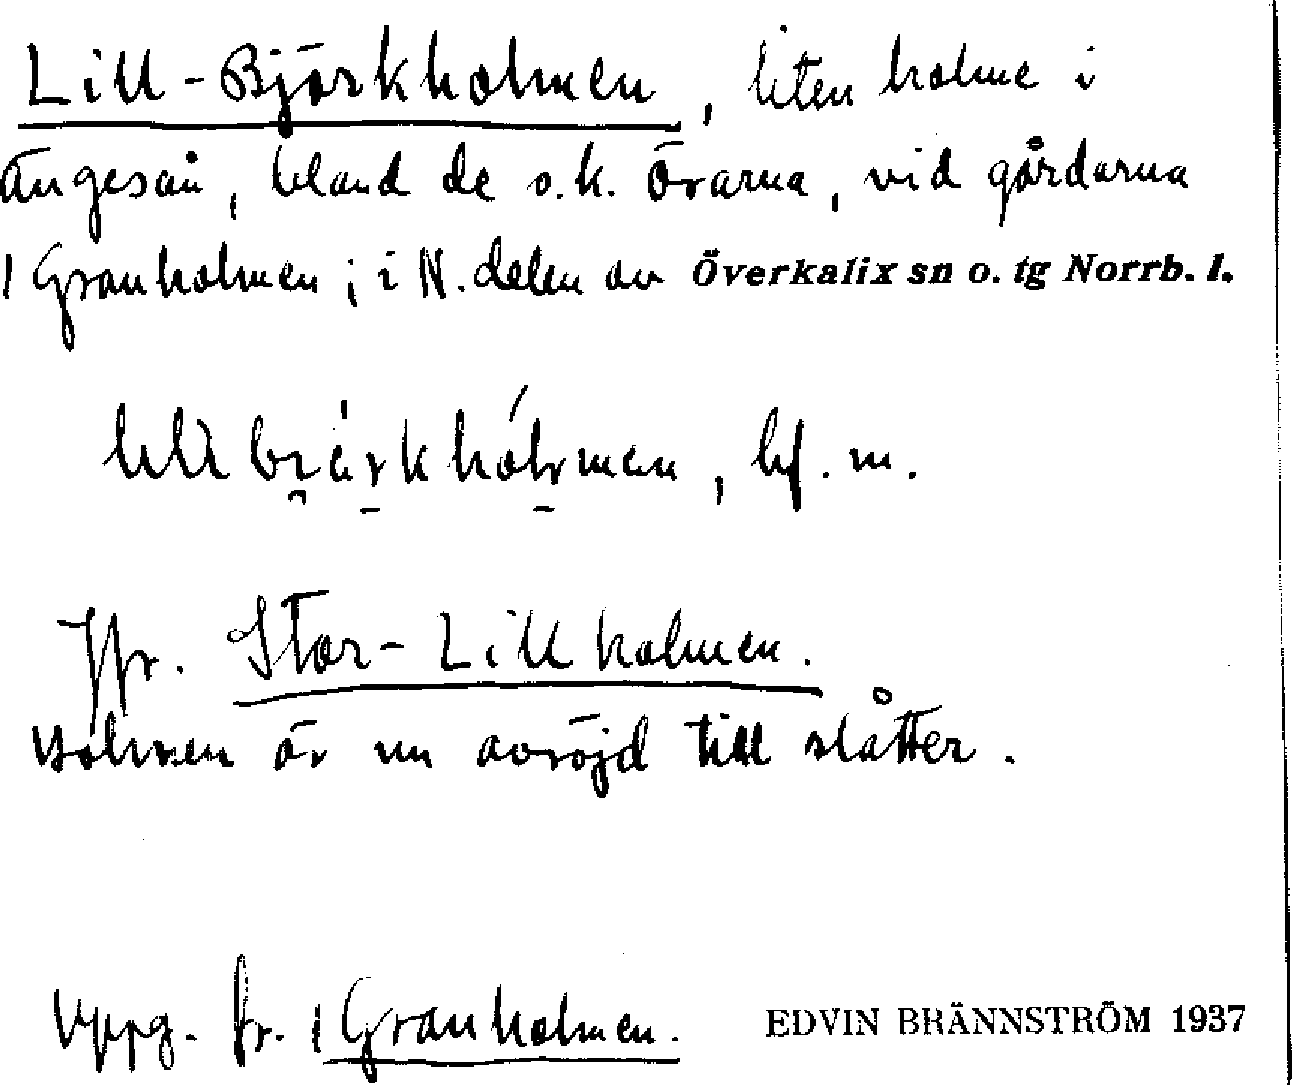 Lill-Björkholmen, liten holme i
Ängesån, bland de s.k. Örarna, vid gårdarna
i Granholmen; i N. delen av Överkalix sn o. tg Norrb. l.
bf. m.
Jfr. Stor-Lillholmen.
Holmen är nu avröjd till slåtter.
Uppg. fr. i Granholmen.
EDVIN BRÄNNSTRÖM 1937